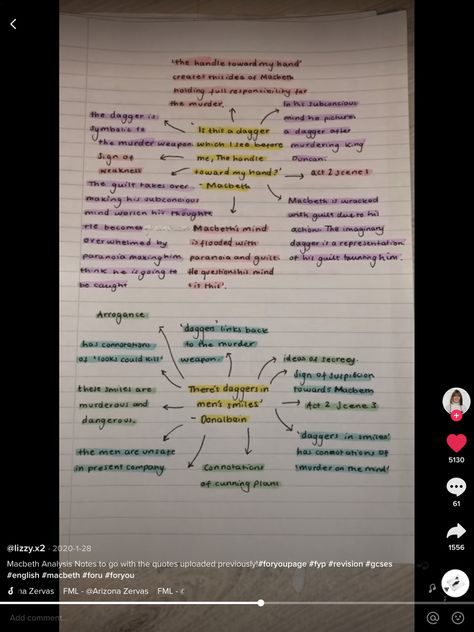 'the handle toward my hand'
creates this idea of Macbeth
holding full responsibility for
the murder.
In his subconcious
mind he pictures
a dagger after
murdering King
Duncan.
the dagger is
symbolic to
the murder weapon.
Sign of
weakness
'Is this a dagger
which I see before
me, The handle
toward my hand?'
- Macbeth
act 2 scene 1
The guilt takes over
making his subconcious
mind worsen his thoughts
He becomes
overwhelmed by
paranoia making him
think he is going to
be caught
Macbeth's mind
is flooded with
paranoia and guilt.
He questions his mind
'is this'.
Macbeth is wracked
with guilt due to his
action. The imaginary
dagger is a representation
of his guilt taunting him.
Arrogance
'daggers' links back
to the murder
weapon.
has connotations
of 'looks could kill'
ideas of secrecy.
Sign of suspicion
towards Macbeth
these smiles are
murderous and
dangerous.
'There's daggers in
men's smiles'
- Donalbain
Act 2 Scene 3
the men are unsafe
in present company.
Connotations
of cunning plans
'daggers in smiles'
has connotations of
'murder on the mind'
5130
61
1556
@lizzy.x2 · 2020-1-28
Macbeth Analysis Notes to go with the quotes uploaded previously!#foryoupage #fyp #revision #gcses
#english #macbeth #foru #foryou
na Zervas FML - @Arizona Zervas FML -
Add comment...